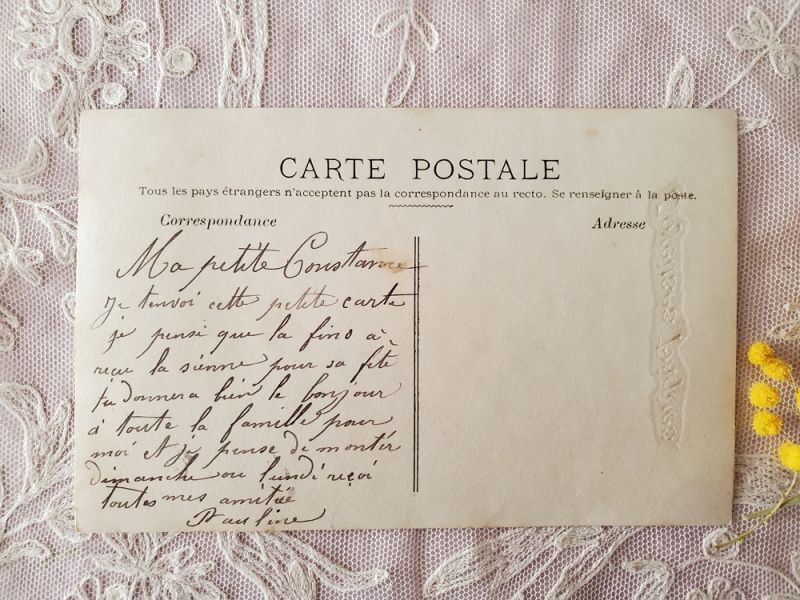 CARTE POSTALE
Tous les pays étrangers n'acceptent pas la correspondance au recto. Se renseigner à la poste.
Correspondance
Adresse
Ma petite Constance
Je tenvoi cette petite carte
je pense que la fino à
reçu la sienne pour sa fête
tu donnera bien le bonjour
a toute la famille pour
moi et je pense de monter
dimanche ou lundi reçoi
toutes mes amitié
Pauline